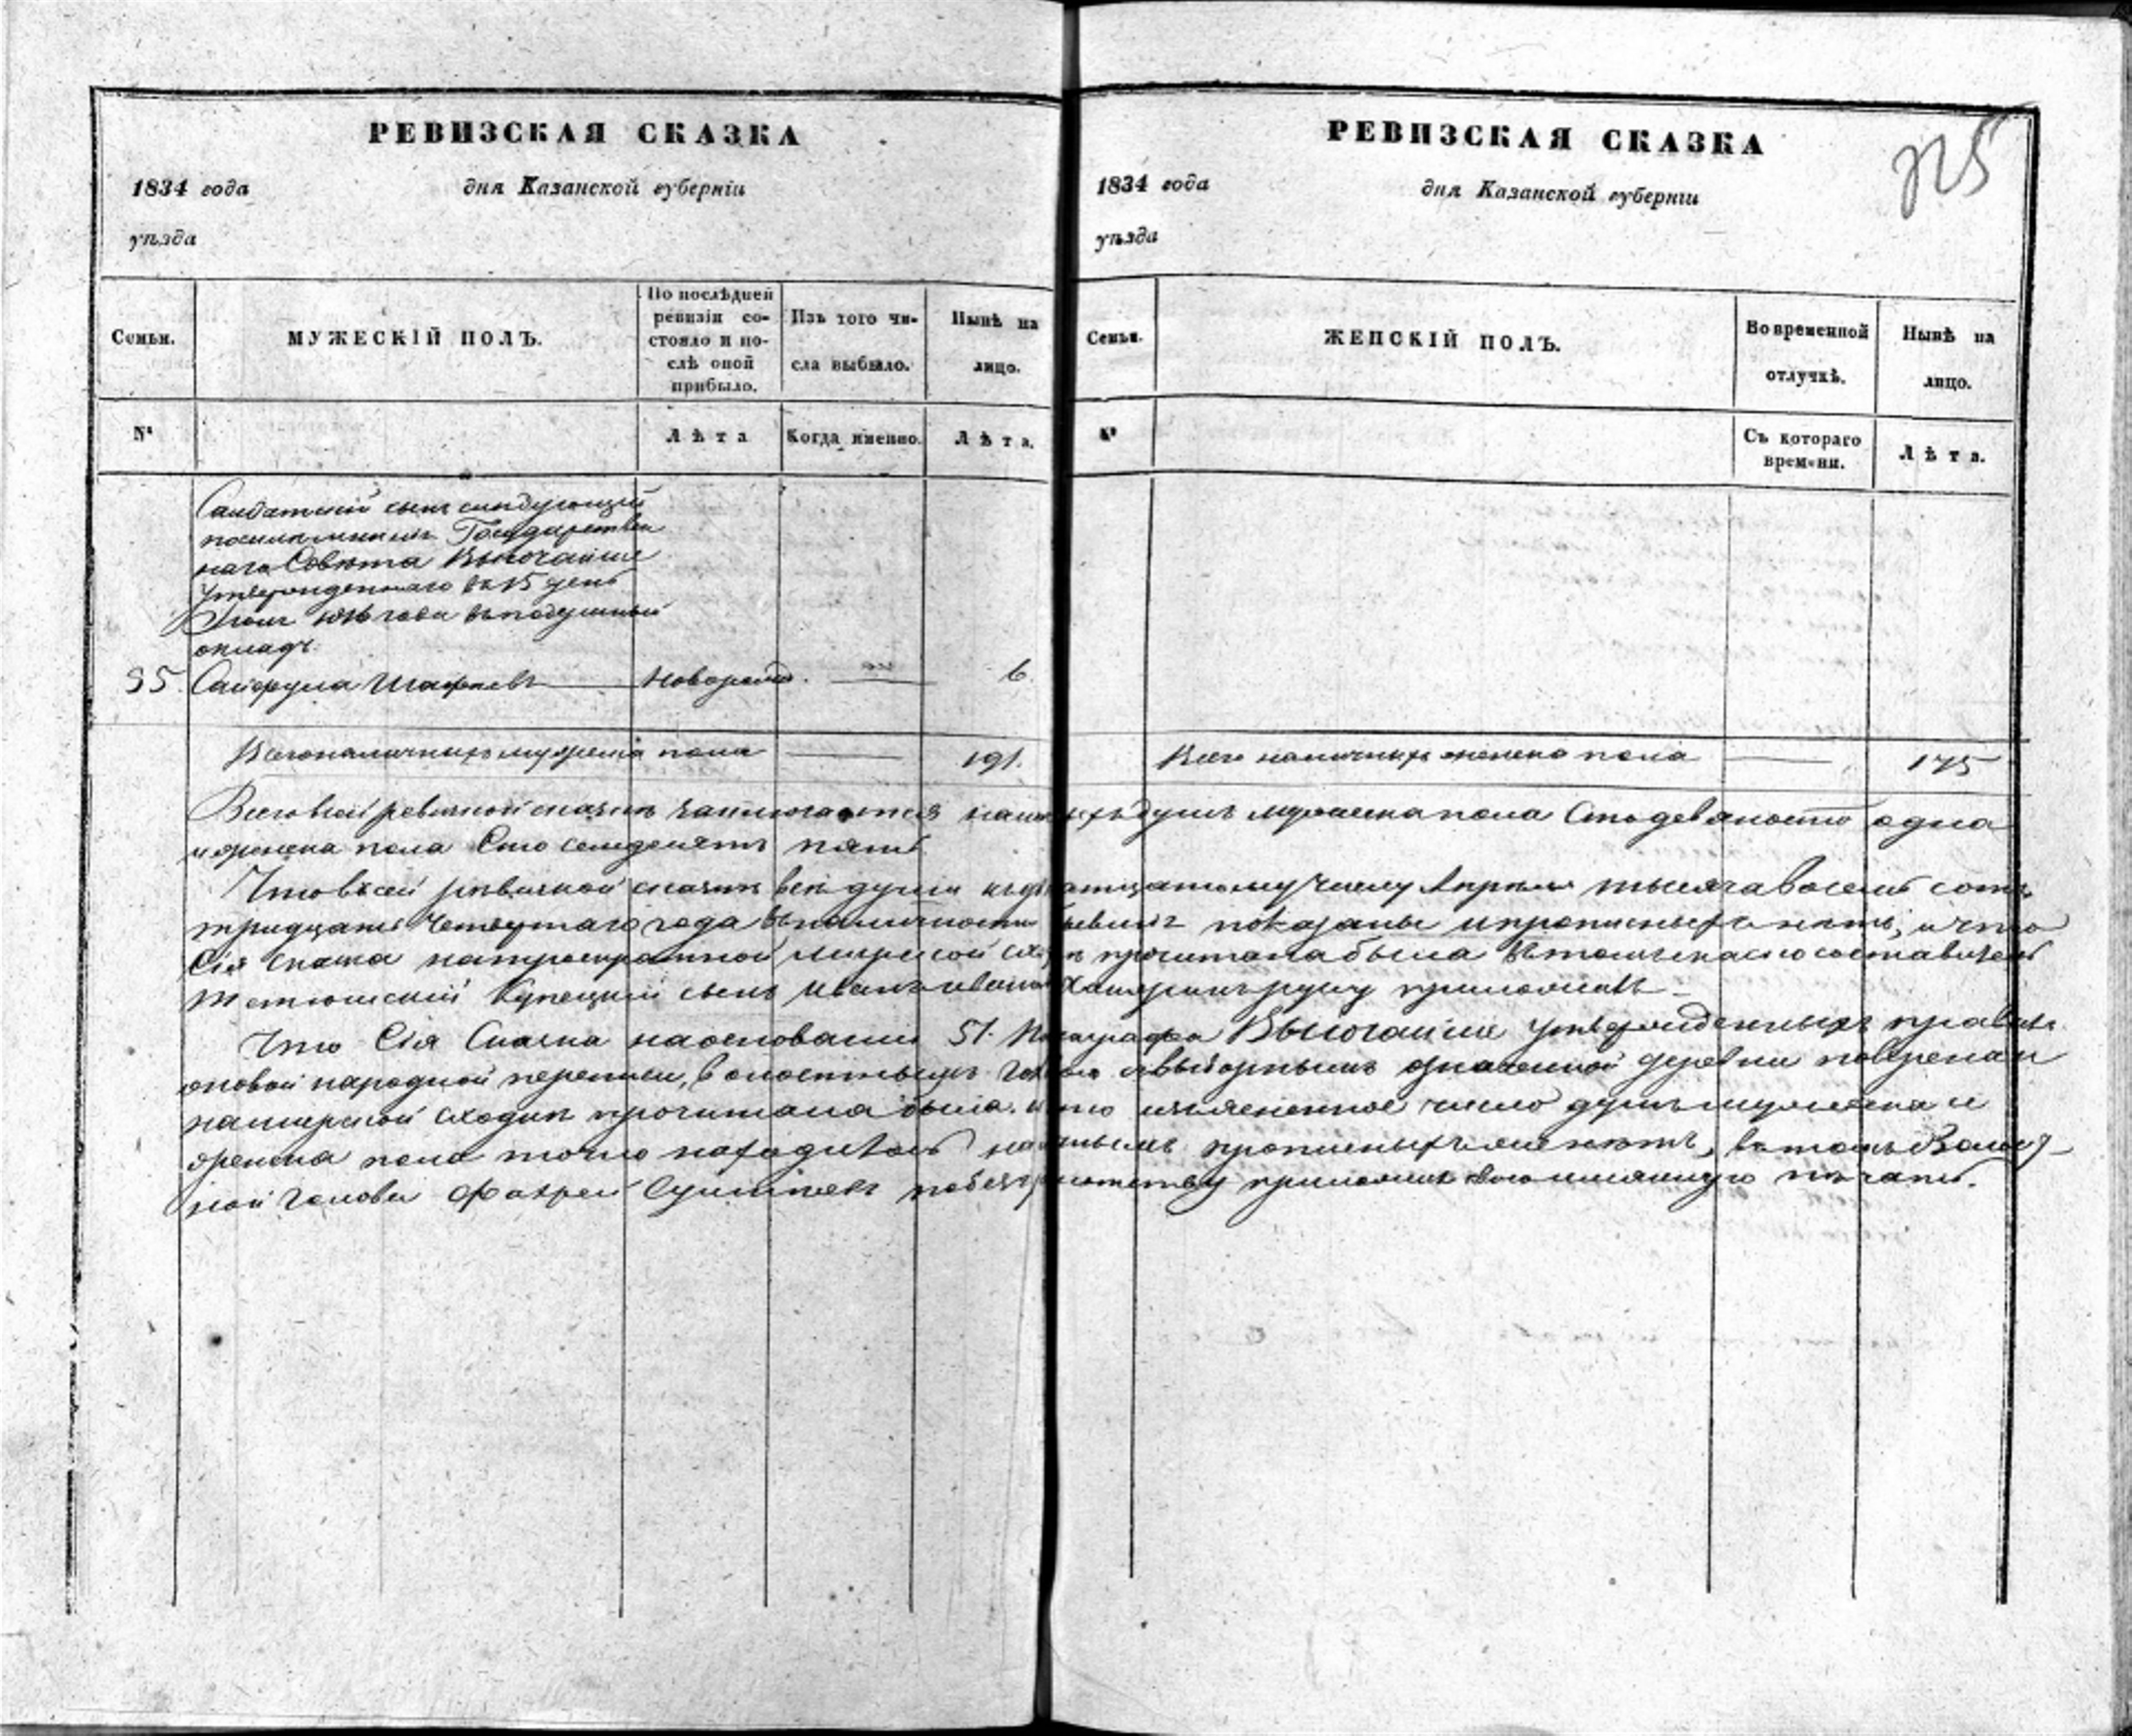 РЕВИЗСКАЯ СКАЗКА
1834 года дня Казанской губерніи
уѣзда
Семьи.
МУЖЕСКІЙ ПОЛЪ.
По послѣдней
ревизіи со-
стояло и по-
слѣ оной
прибыло.
Изъ того чи-
сла выбыло.
Нынѣ на
лицо.
№
Лѣта
Когда именно.
Лѣта.
Салдатской сынъ следующий
по мнению Государствен
наго Совета Высочайше
утвержденнаго въ 15 день
года въ подушный
окладъ.
95. Сайфула Новорожд. 6.
Всего наличныхъ мужеска пола 191.
РЕВИЗСКАЯ СКАЗКА
325
1834 года дня Казанской губерніи
уѣзда
Семьи.
ЖЕНСКІЙ ПОЛЪ.
Во временной
отлучкѣ.
Нынѣ на
лицо.
№
Съ котораго
времени.
Лѣта.
Всего наличныхъ женска пола 175
Всего в сей ревизкой сказке заключается душъ мужеска пола Сто девяносто одна
и женска пола Сто семдесятъ пять
Что в сей ревизкой сказке все души числу Апреля тысяча восемь сотъ
тридцать четвертаго года в наличности показаны и прописныхъ нетъ, и что
Сія сказка мирской прочитана была в томъ
тетюшский Купецкий сынъ Иванъ руку приложилъ
Что Сія Сказка на основании 51. Параграфа Высочайше утвержденныхъ правилъ
о новой народной переписи, волостнымъ выборнымъ означенной деревни
на мирской сходке прочитана была. изъясненное число душъ мужеска и
женска пола точно находится прописныхъ нетъ, в томъ Волост
ной голова по безграмотству приложилъ свою имянную печать.